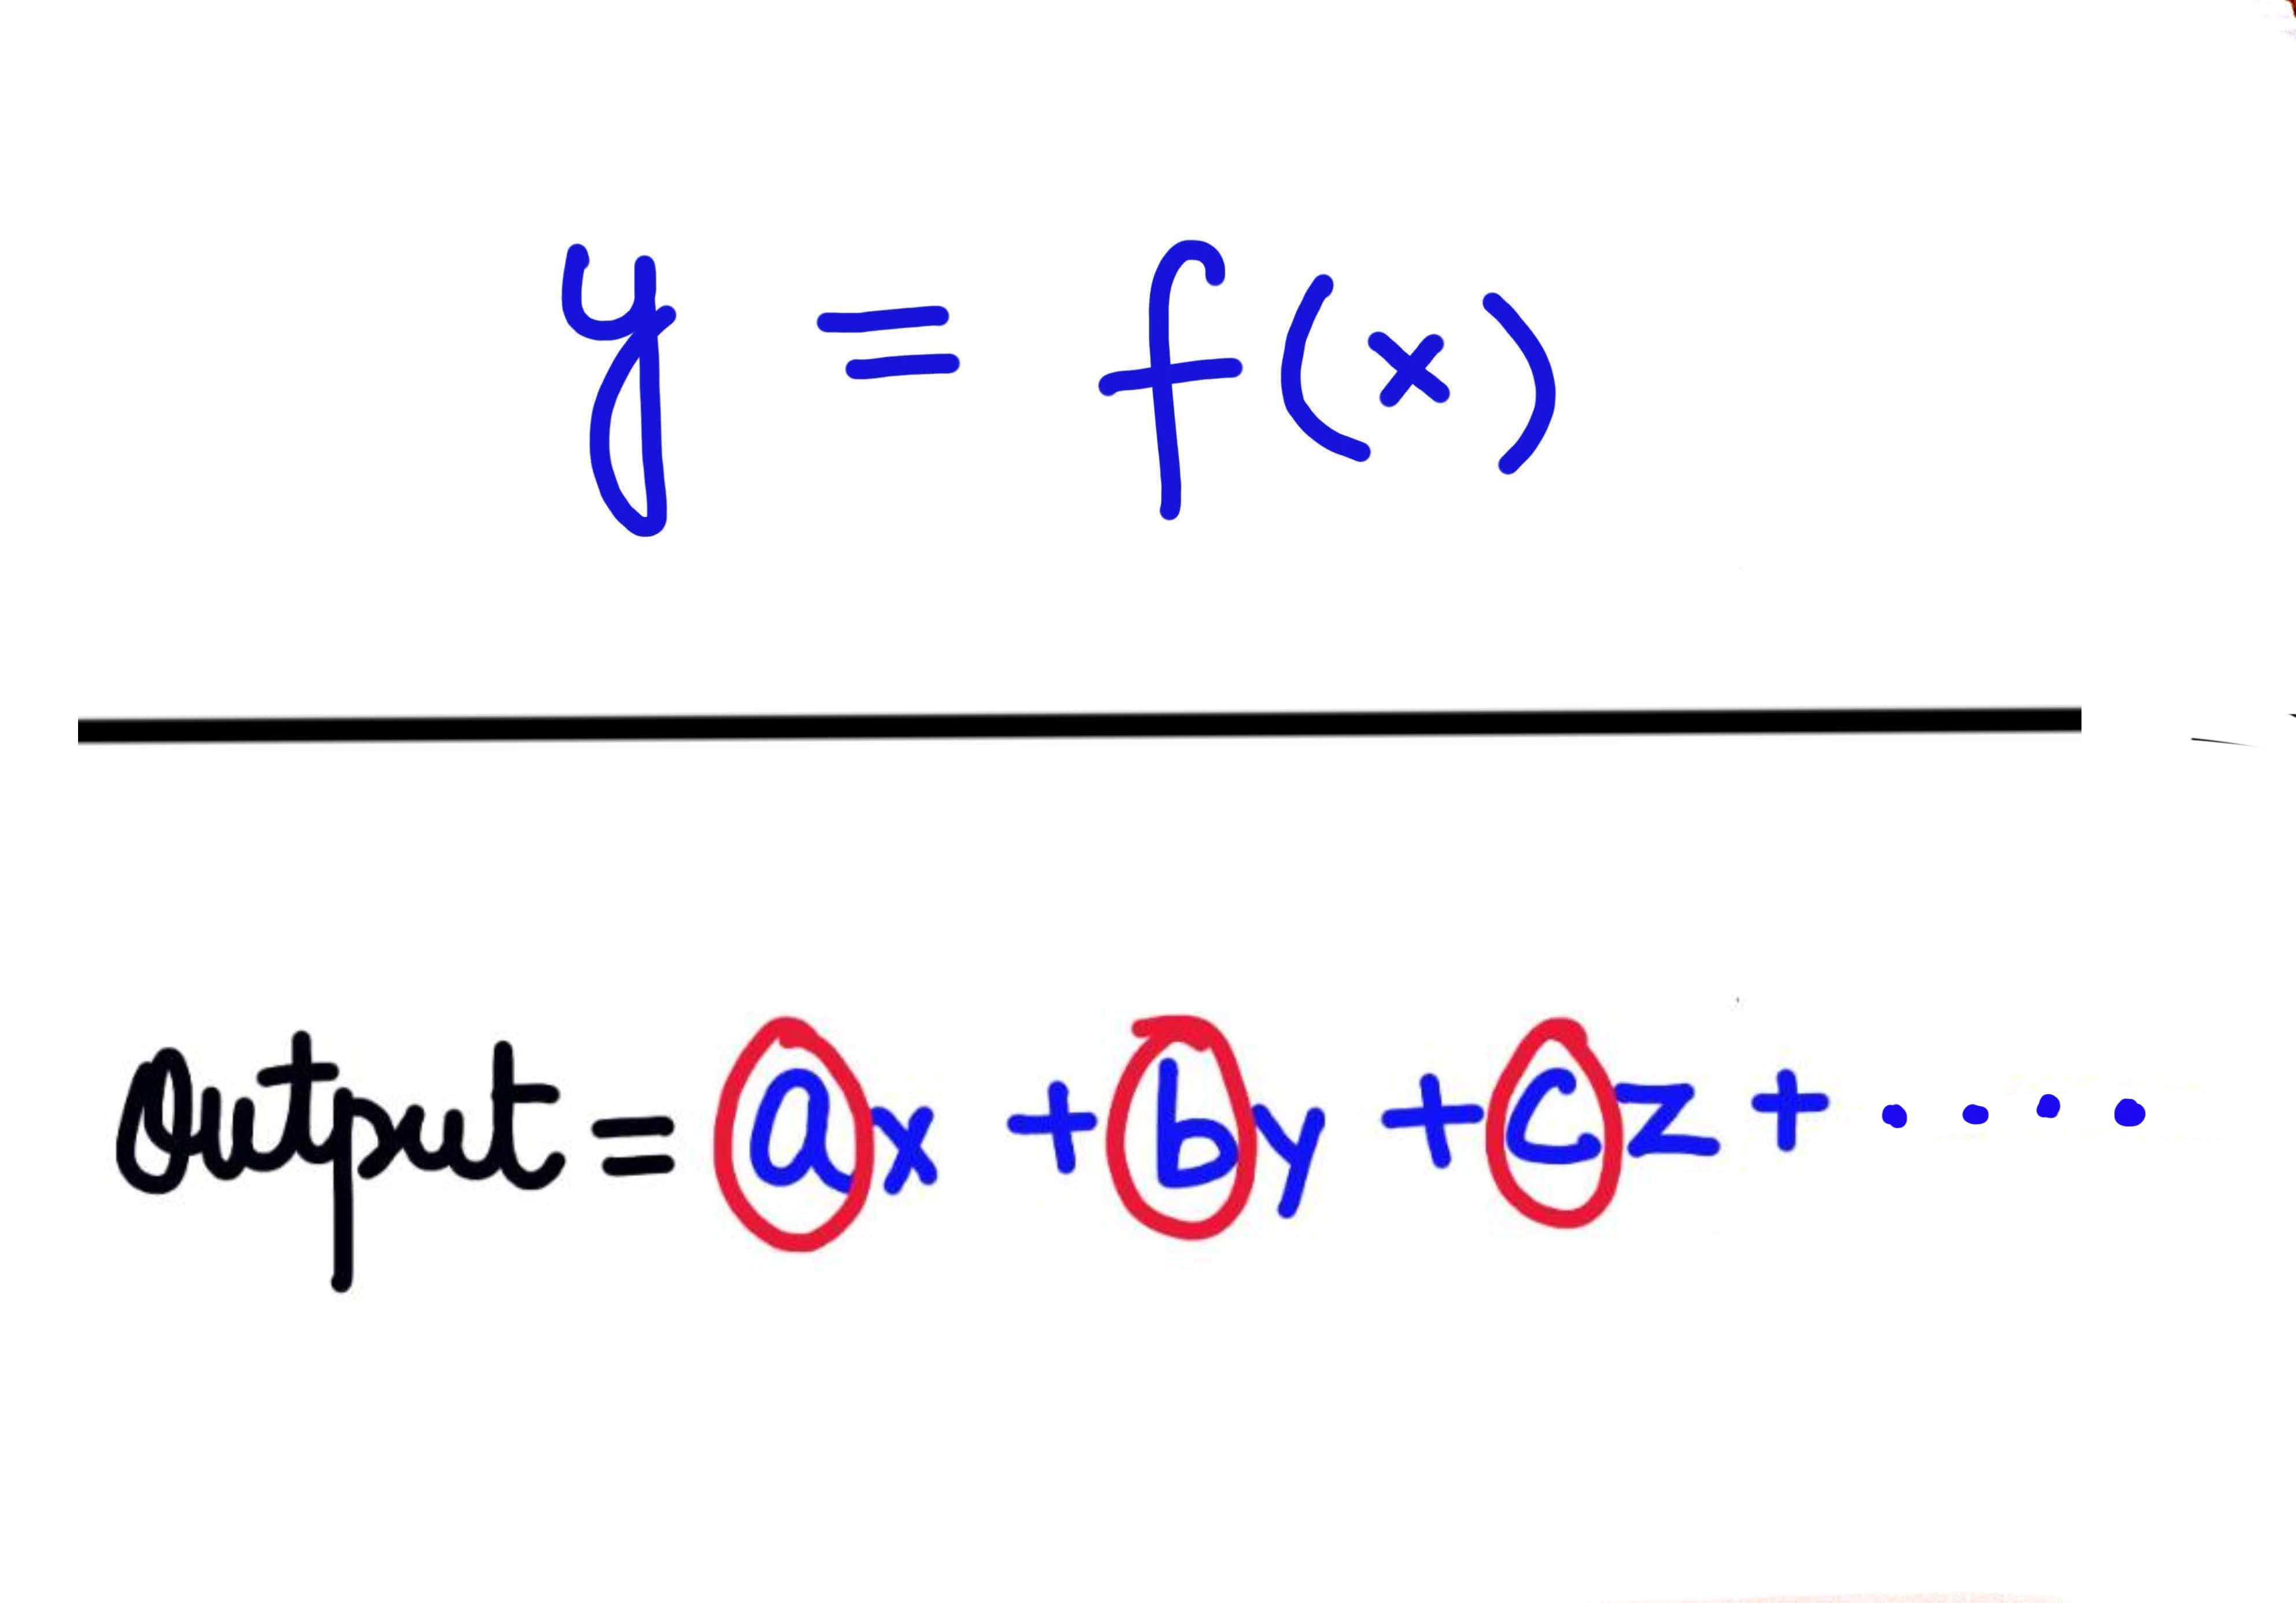 y = f(x)
Output = ax + by + cz + ....